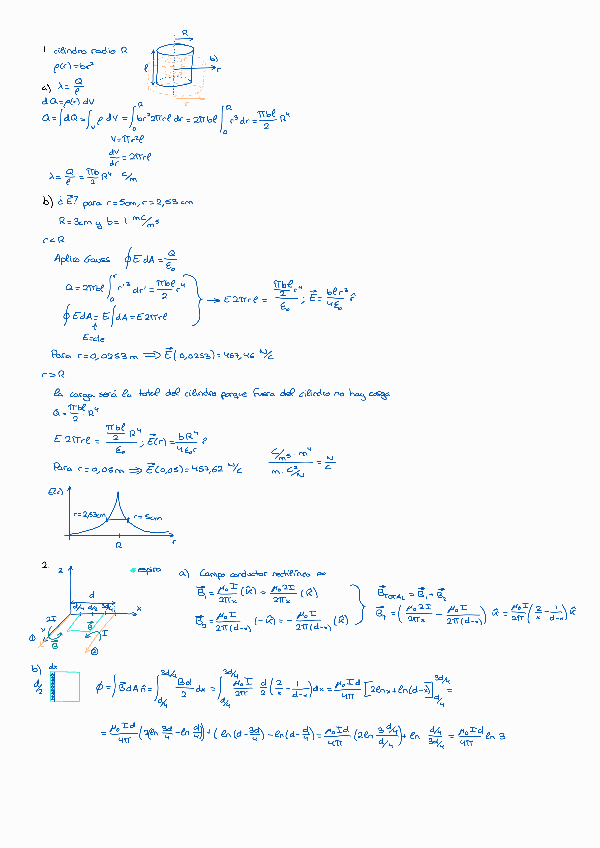 1 cilindro radio R
ρ(r) = br²
R
l
b)
r
r
a) λ = Q/l
dQ = ρ(r) dV
Q = ∫dQ = ∫_V ρ dV = ∫₀^R br² 2πrl dr = 2πbl ∫₀^R r³ dr = πbl/2 R⁴
V = πr²l
dV/dr = 2πrl
λ = Q/l = πb/2 R⁴ C/m
b) ¿E⃗? para r = 5cm, r = 2,53 cm
R = 3cm y b = 1 mC/m⁵
r < R
Aplico Gauss ∮E dA = Q/ε₀
Q = 2πbl ∫₀^r r'³ dr' = πbl/2 r⁴
∮E dA = E∫dA = E2πrl
E = cte
→ E 2πrl = (πbl/2 r⁴)/ε₀ ; E⃗ = blr³/4ε₀ r̂
Para r = 0,0253 m ⟹ E⃗(0,0253) = 457,46 N/C
r > R
la carga será la total del cilindro porque fuera del cilindro no hay carga
Q = πbl/2 R⁴
E 2πrl = (πbl/2 R⁴)/ε₀ ; E⃗(r) = bR⁴/4ε₀r r̂
Para r = 0,05 m ⟹ E⃗(0,05) = 457,62 N/C
(C/m⁵ · m⁴)/(m · C²/N) = N/C
E(r)
r = 2,53cm
r = 5cm
R
r
2.
z
espira
d
d/4 d/2 3d/4
x
2I
I
y
B⃗
B⃗
① ②
a) Campo conductor rectilíneo ∞
B⃗₁ = μ₀I/2πx (k̂) = μ₀2I/2πx (k̂)
B⃗₂ = μ₀I/2π(d-x) (-k̂) = - μ₀I/2π(d-x) (k̂)
B⃗TOTAL = B⃗₁ + B⃗₂
B⃗T = (μ₀2I/2πx - μ₀I/2π(d-x)) k̂ = μ₀I/2π (2/x - 1/d-x) k̂
b) dx
d/2
ϕ = ∫B⃗ dA n̂ = ∫_{d/4}^{3d/4} Bd/2 dx = ∫_{d/4}^{3d/4} μ₀I/2π d/2 (2/x - 1/d-x) dx = μ₀Id/4π [2lnx + ln(d-x)]_{d/4}^{3d/4} =
= μ₀Id/4π (2(ln 3d/4 - ln d/4) + (ln(d - 3d/4) - ln(d - d/4) = μ₀Id/4π (2ln (3d/4)/(d/4)) + ln (d/4)/(3d/4) = μ₀Id/4π ln 3